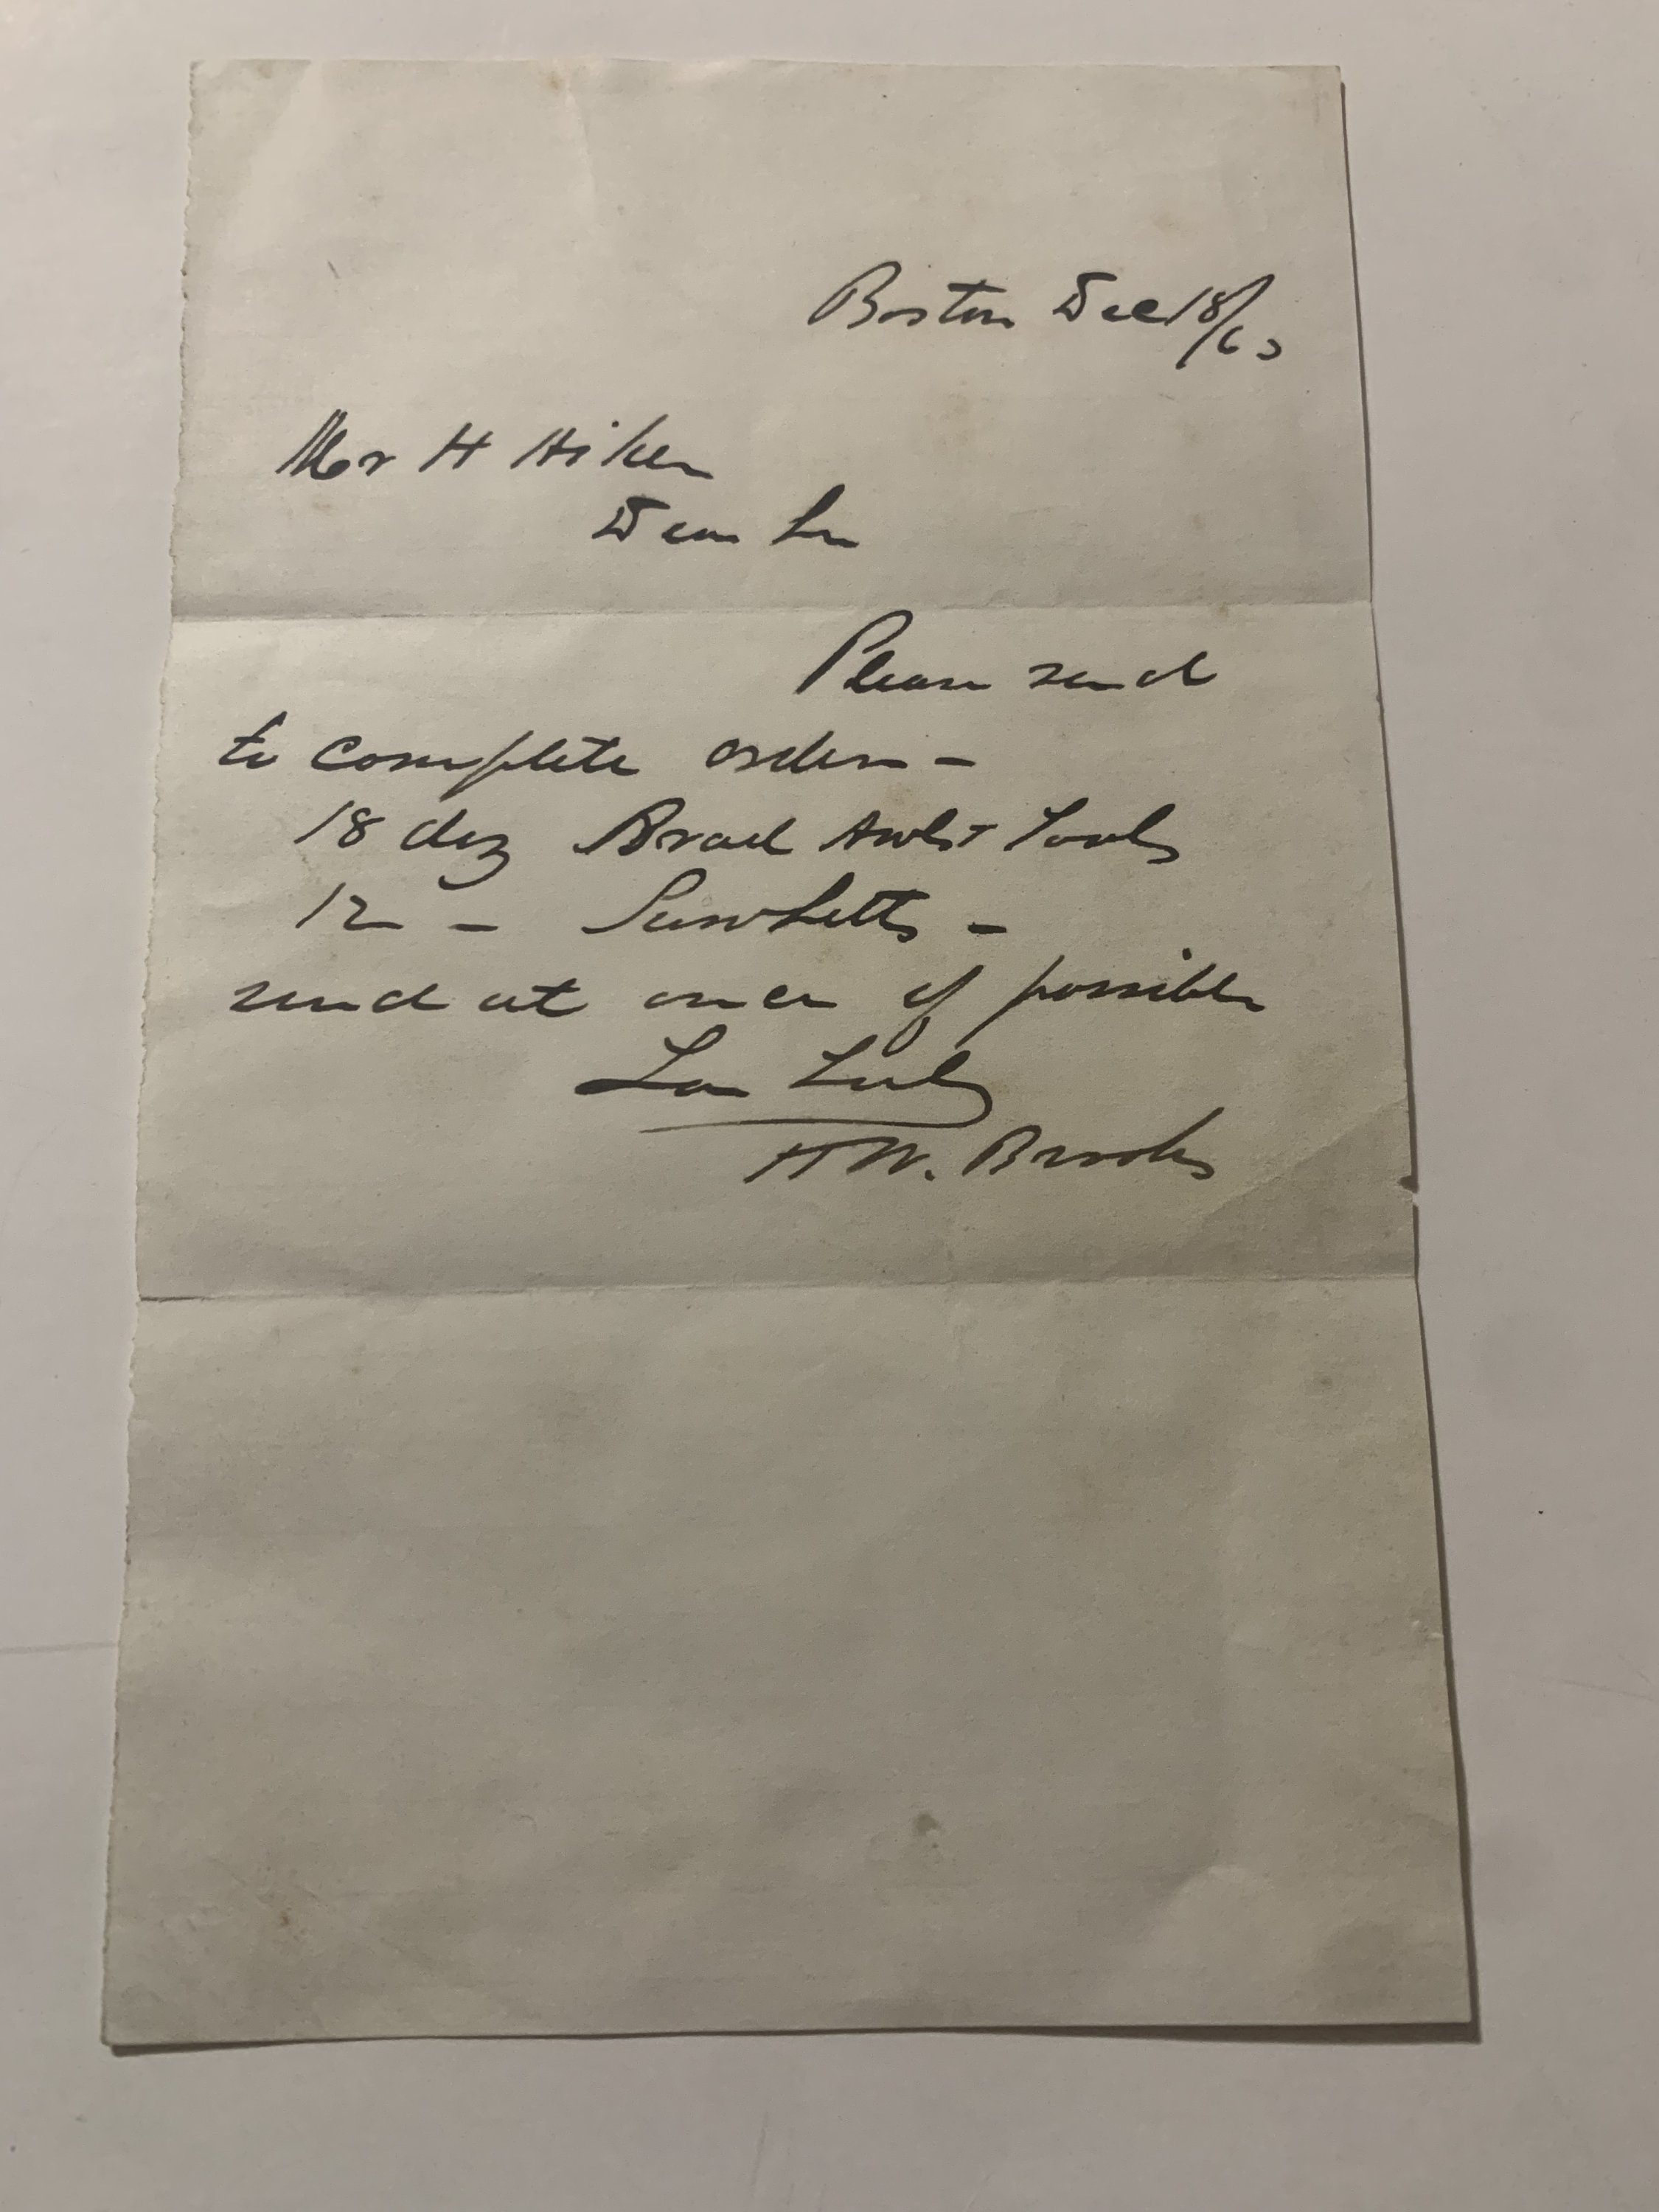 Boston Dec 18/63
Mr H Aiken
Dear Sir
Please send
to complete order -
18 doz Brad Awls & Tools
12 - Saw Setts -
send at once if possible
Yours Truly
H W. Brooks